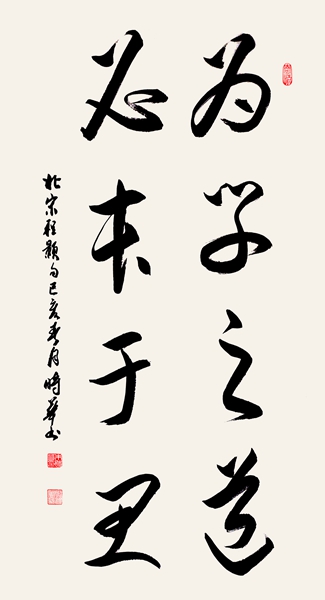 为学之道
必本于思
北宋程颢句己亥春月时华书